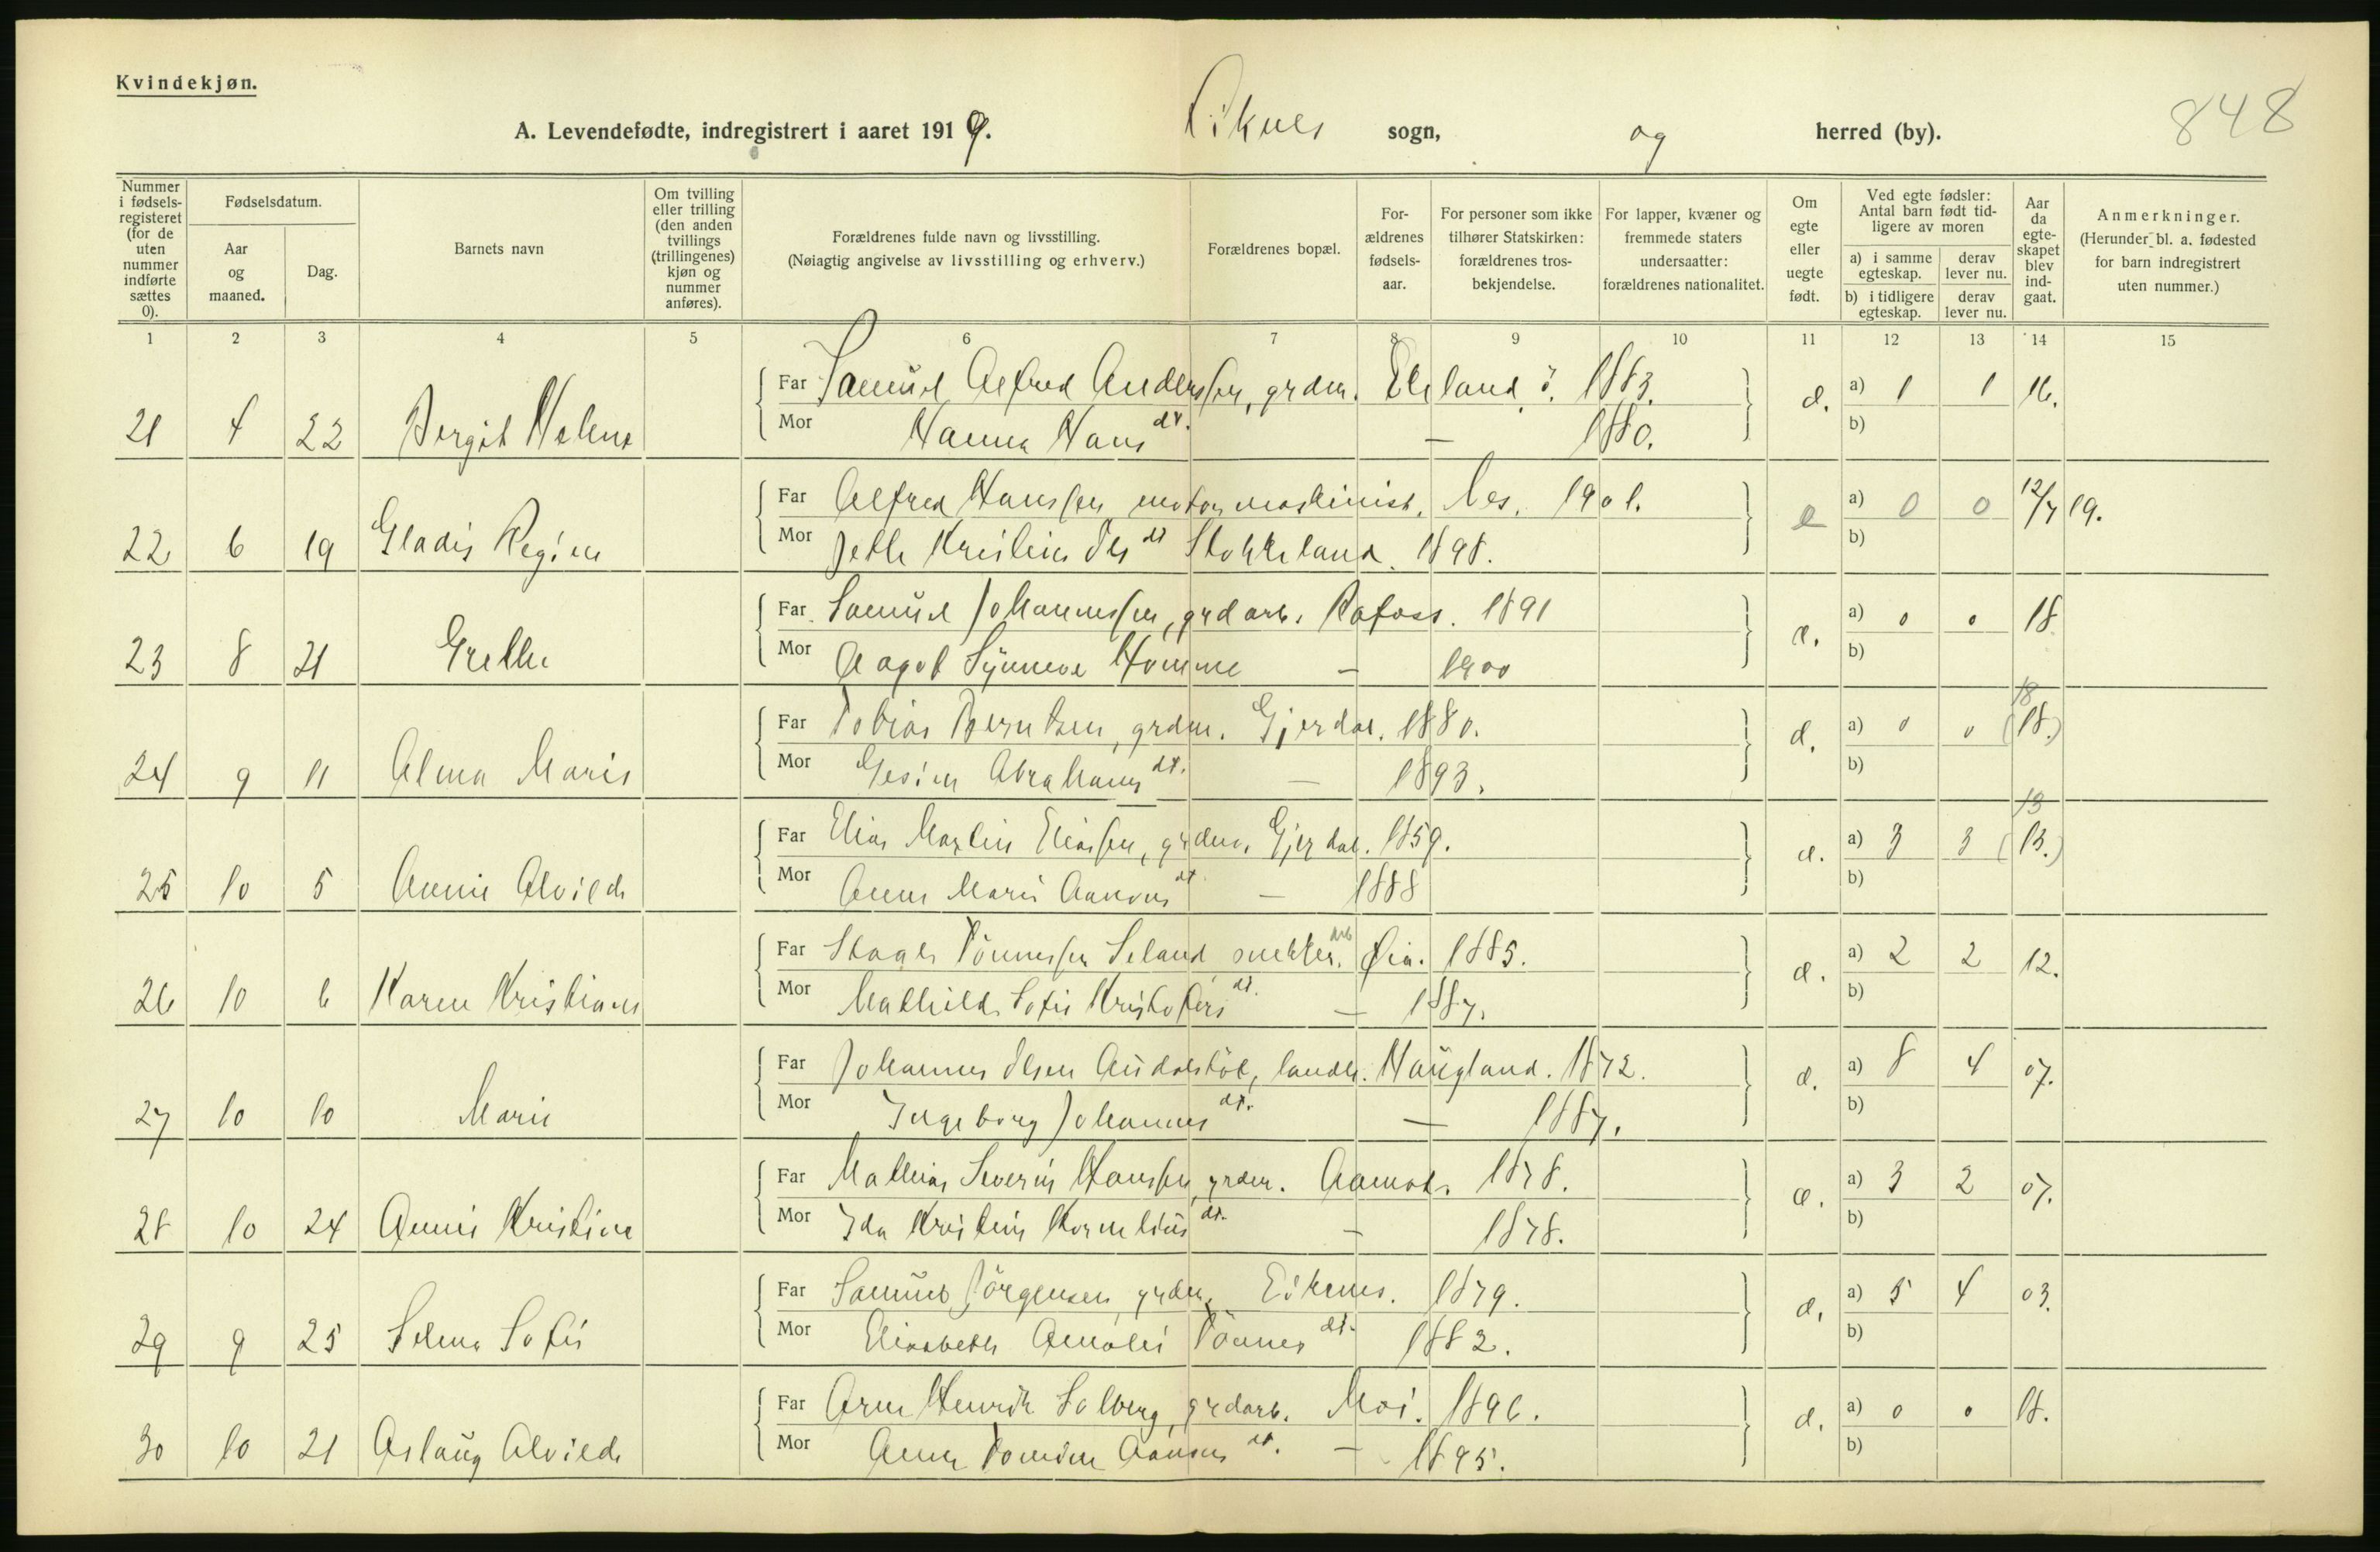 Kvindekjøn.
A. Levendefødte, indregistrert i aaret 1919. sogn, og herred (by). 848
Nummer i fødselsregisteret (for de uten nummer indførte sættes 0).
Fødselsdatum.
Aar og maaned.
Dag.
Barnets navn
Om tvilling eller trilling (den anden tvillings (trillingenes) kjøn og nummer anføres).
Forældrenes fulde navn og livsstilling.
(Nøiagtig angivelse av livsstilling og erhverv.)
Forældrenes bopæl.
Forældrenes fødselsaar.
For personer som ikke tilhører Statskirken: forældrenes trosbekjendelse.
For lapper, kvæner og fremmede staters undersaatter: forældrenes nationalitet.
Om egte eller uegte født.
Ved egte fødsler: Antal barn født tidligere av moren
a) i samme egteskap. derav lever nu.
b) i tidligere egteskap. derav lever nu.
Aar da egteskapet blev indgaat.
Anmerkninger.
(Herunder bl. a. fødested for barn indregistrert uten nummer.)
1 2 3 4 5 6 7 8 9 10 11 12 13 14 15
Far Samuel Alfred Anderssen, grdm. 1883. a) 1 1 16.
21 4 22 Bergit Helene Mor Hanna Hans dt. — 1880. b)
Far Alfred Hanssen motormaskinist. Nes. 1901. e a) 0 0 12/7 19.
22 6 19 Gladis Regine Mor Stokkeland. 1898. b)
Far Samuel Johannessen, grdarb. Rafoss. 1891 a) 0 0 18
23 8 21 Grethe Mor Aagot Synneve Homme — 1900 b)
Far Tobias Berntsen, grdm. Gjerdal. 1880. a) 0 0 18 (18.)
24 9 11 Alma Marie Mor Gesine Abrahams dt. — 1893. b)
Far Elias Martin Eliassen, grdm. Gjerdal. 1859. a) 3 3 13 (13.)
25 10 5 Annie Alvilde Mor Anne Marie Aanons dt — 1888 b)
Far Tönnessen Seland snekker arb. Øia. 1885. a) 2 2 12.
26 10 6 Karen Kristiane Mor Mathilde Sofie Kristofers dt. — 1887. b)
Far Johannes Olsen landh. Haugland. 1872. a) 8 4 07.
27 10 10 Marie Mor Ingeborg Johannes dt. — 1887. b)
Far Mathias Severin Hanssen, grdm. Aamot. 1878. a) 3 2 07.
28 10 24 Annie Kristine Mor Ida Kristine Kornelius dt. — 1878. b)
Far Samuel Jörgensen, grdm. Eikenes. 1879. a) 5 4 03.
29 9 25 Selma Sofie Mor Elisabeth Amalie Tönnes dt. 1882. b)
Far Arne Henrik Solberg, grdarb. Moi. 1896. a) 0 0 18.
30 10 21 Aslaug Alvilde Mor Anne Tomine Aanons dt. — 1895. b)